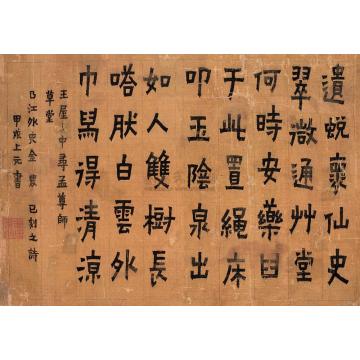 遺蛻仙史
翠微通艸堂
何時安藥臼
于此置繩床
叩玉陰泉出
如人雙樹長
嗒肰白雲外
巾舄得清涼
王屋山中尋孟尊師
草堂
江外史金農 已刻之詩
甲戌上元書